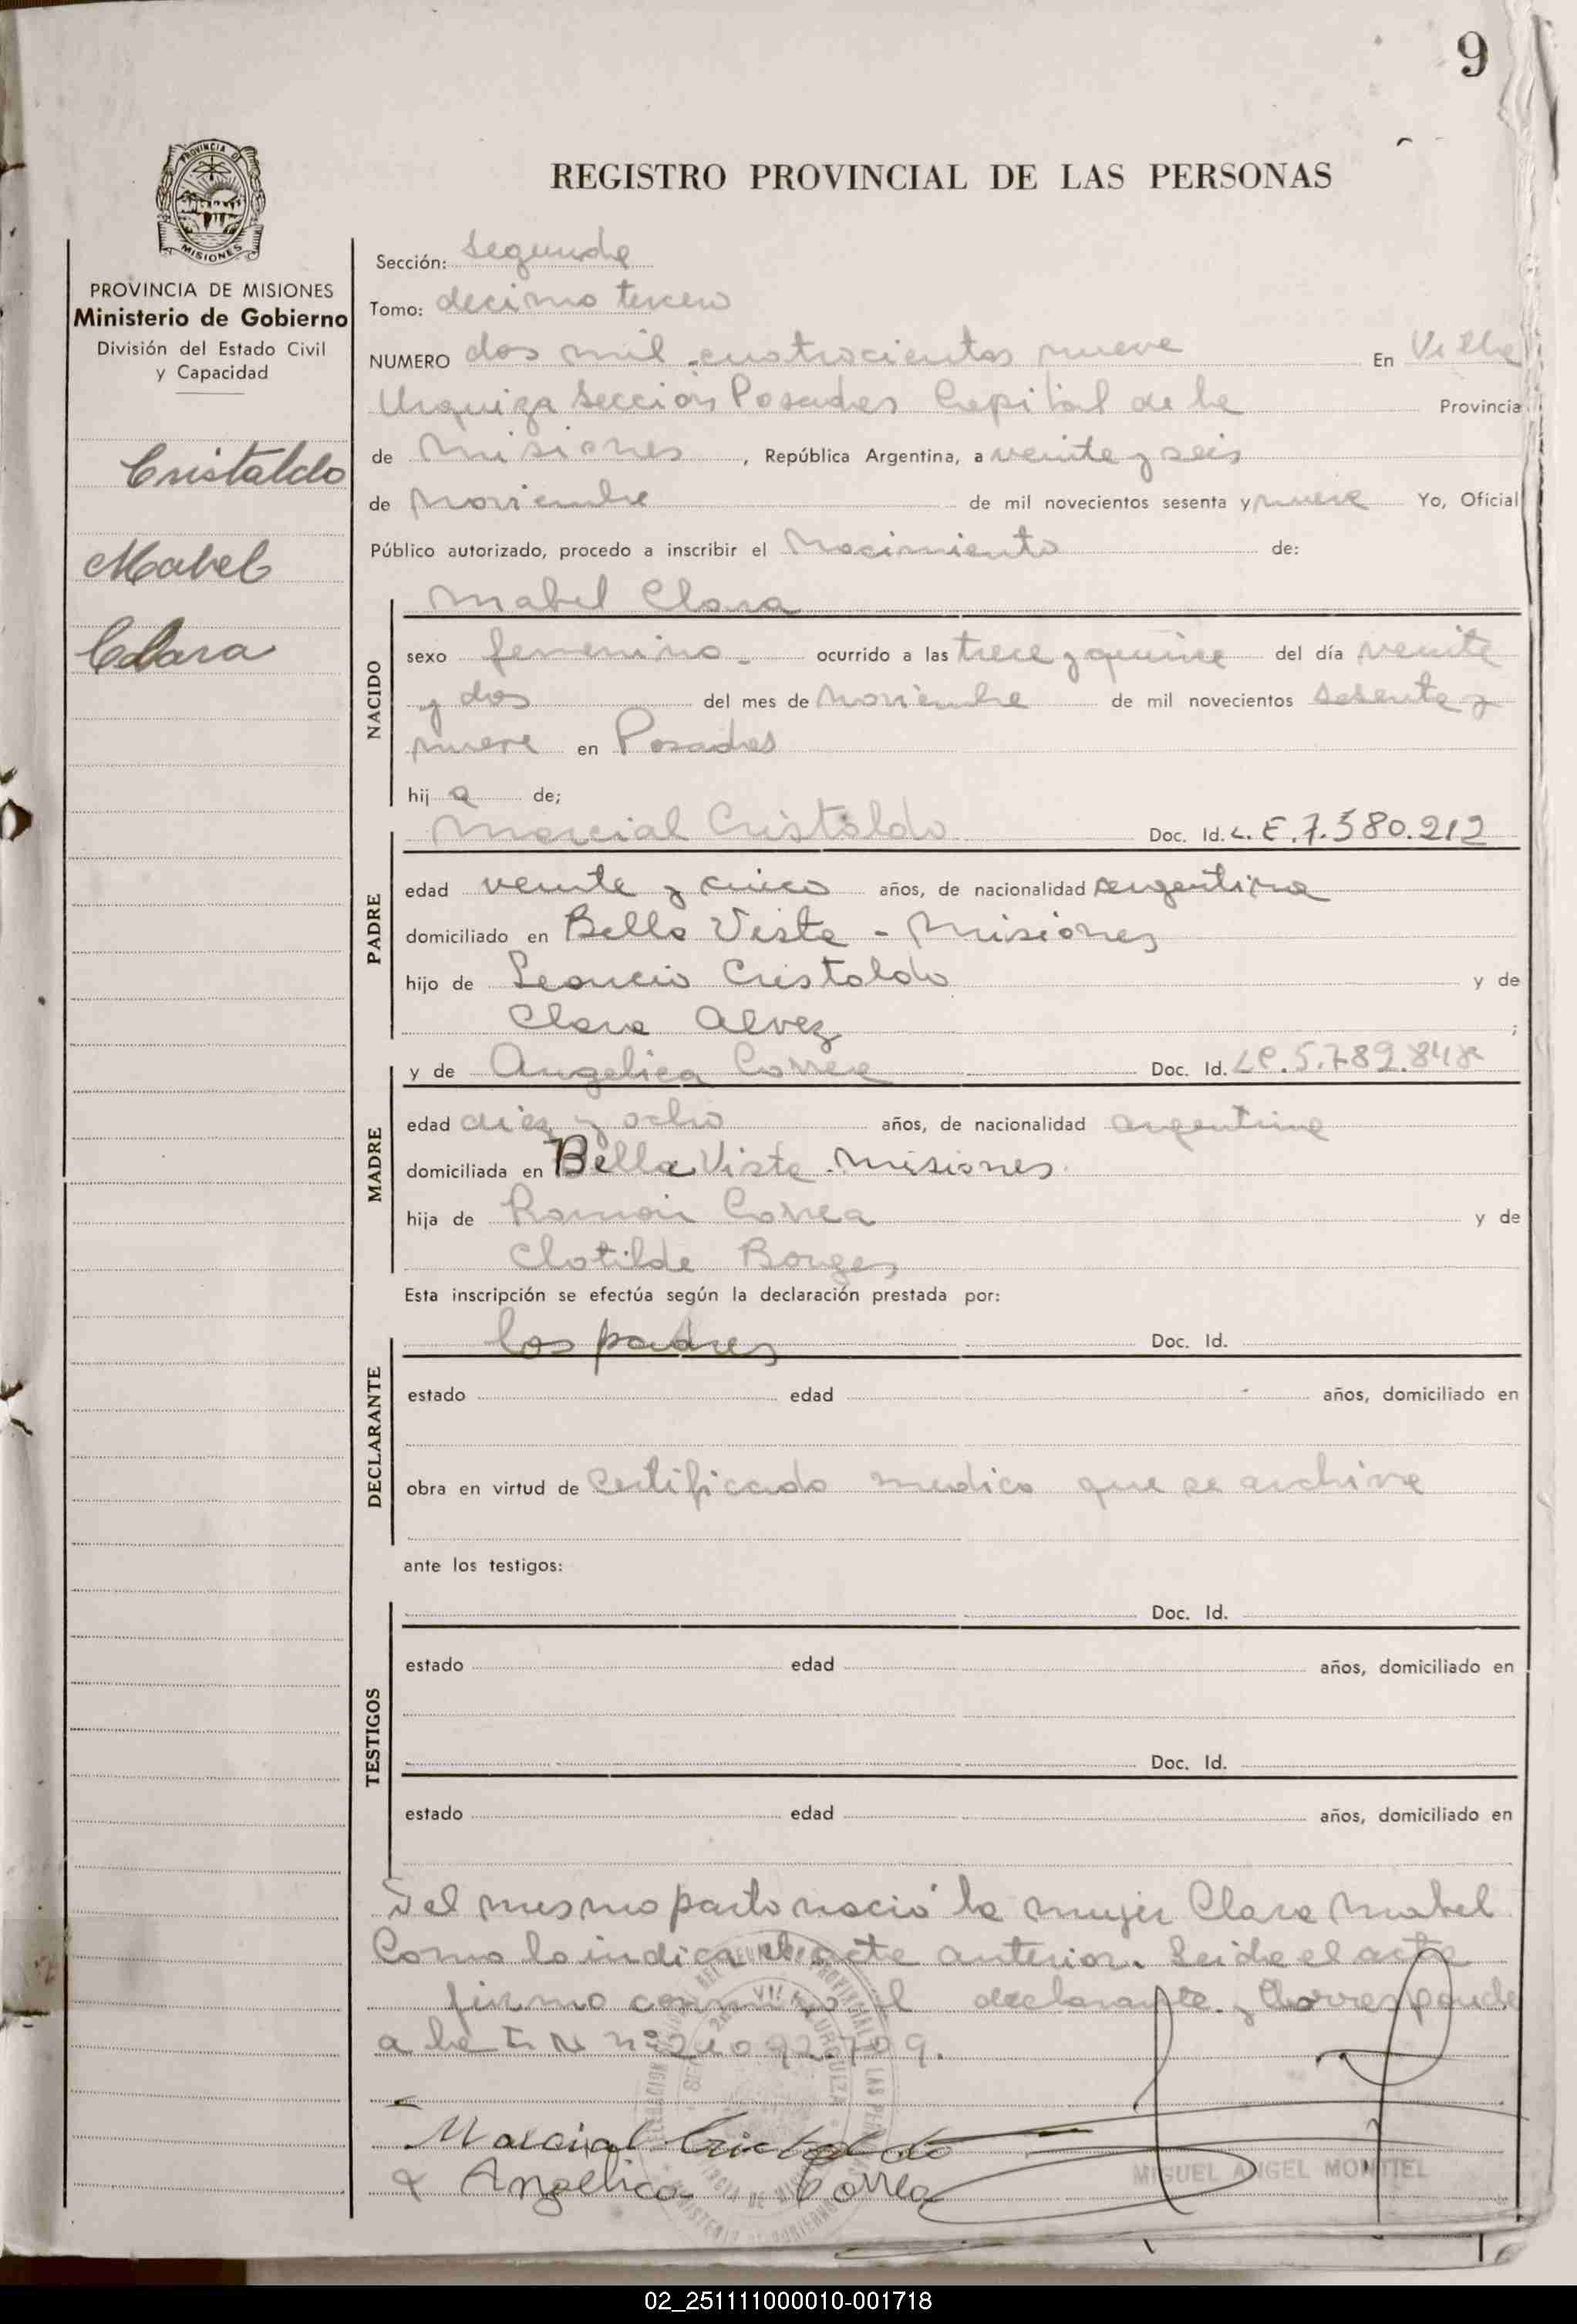 9
REGISTRO PROVINCIAL DE LAS PERSONAS
PROVINCIA DE MISIONES
Ministerio de Gobierno
División del Estado Civil
y Capacidad
Cristaldo
Mabel
Clara
Sección: Segunda
Tomo: decimo tercero
NUMERO dos mil cuatrocientos nueve En Villa
Urquiza Sección Posadas Capital de la Provincia
de Misiones, República Argentina, a veinte y seis
de Noviembre de mil novecientos sesenta y nueve Yo, Oficial
Público autorizado, procedo a inscribir el Nacimiento de:
NACIDO
Mabel Clara
sexo femenino. ocurrido a las trece y quince del día veinte
y dos del mes de Noviembre de mil novecientos sesenta y
nueve en Posadas
hija de;
PADRE
Marcial Cristaldo Doc. Id. L.E.7.580.212
edad veinte y cinco años, de nacionalidad argentina
domiciliado en Bella Vista - Misiones
hijo de Leoncio Cristaldo y de
Clara Alvez ;
MADRE
y de Angelica Correa Doc. Id. LC.5.789.848
edad diez y ocho años, de nacionalidad argentina
domiciliada en Bella Vista - Misiones
hija de Ramón Correa y de
Clotilde Borges
Esta inscripción se efectúa según la declaración prestada por:
DECLARANTE
los padres Doc. Id.
estado edad años, domiciliado en
obra en virtud de Certificado medico que se archiva
ante los testigos:
TESTIGOS
Doc. Id.
estado edad años, domiciliado en
Doc. Id.
estado edad años, domiciliado en
Del mismo parto nació la mujer Clara Mabel
Como lo indica el acta anterior. Leida el acta
firma conmigo el declarante. Corresponde
a la nº 21.092.709.
Marcial Cristaldo
Angelica Correa
MIGUEL ANGEL MONTIEL
02_251111000010-001718